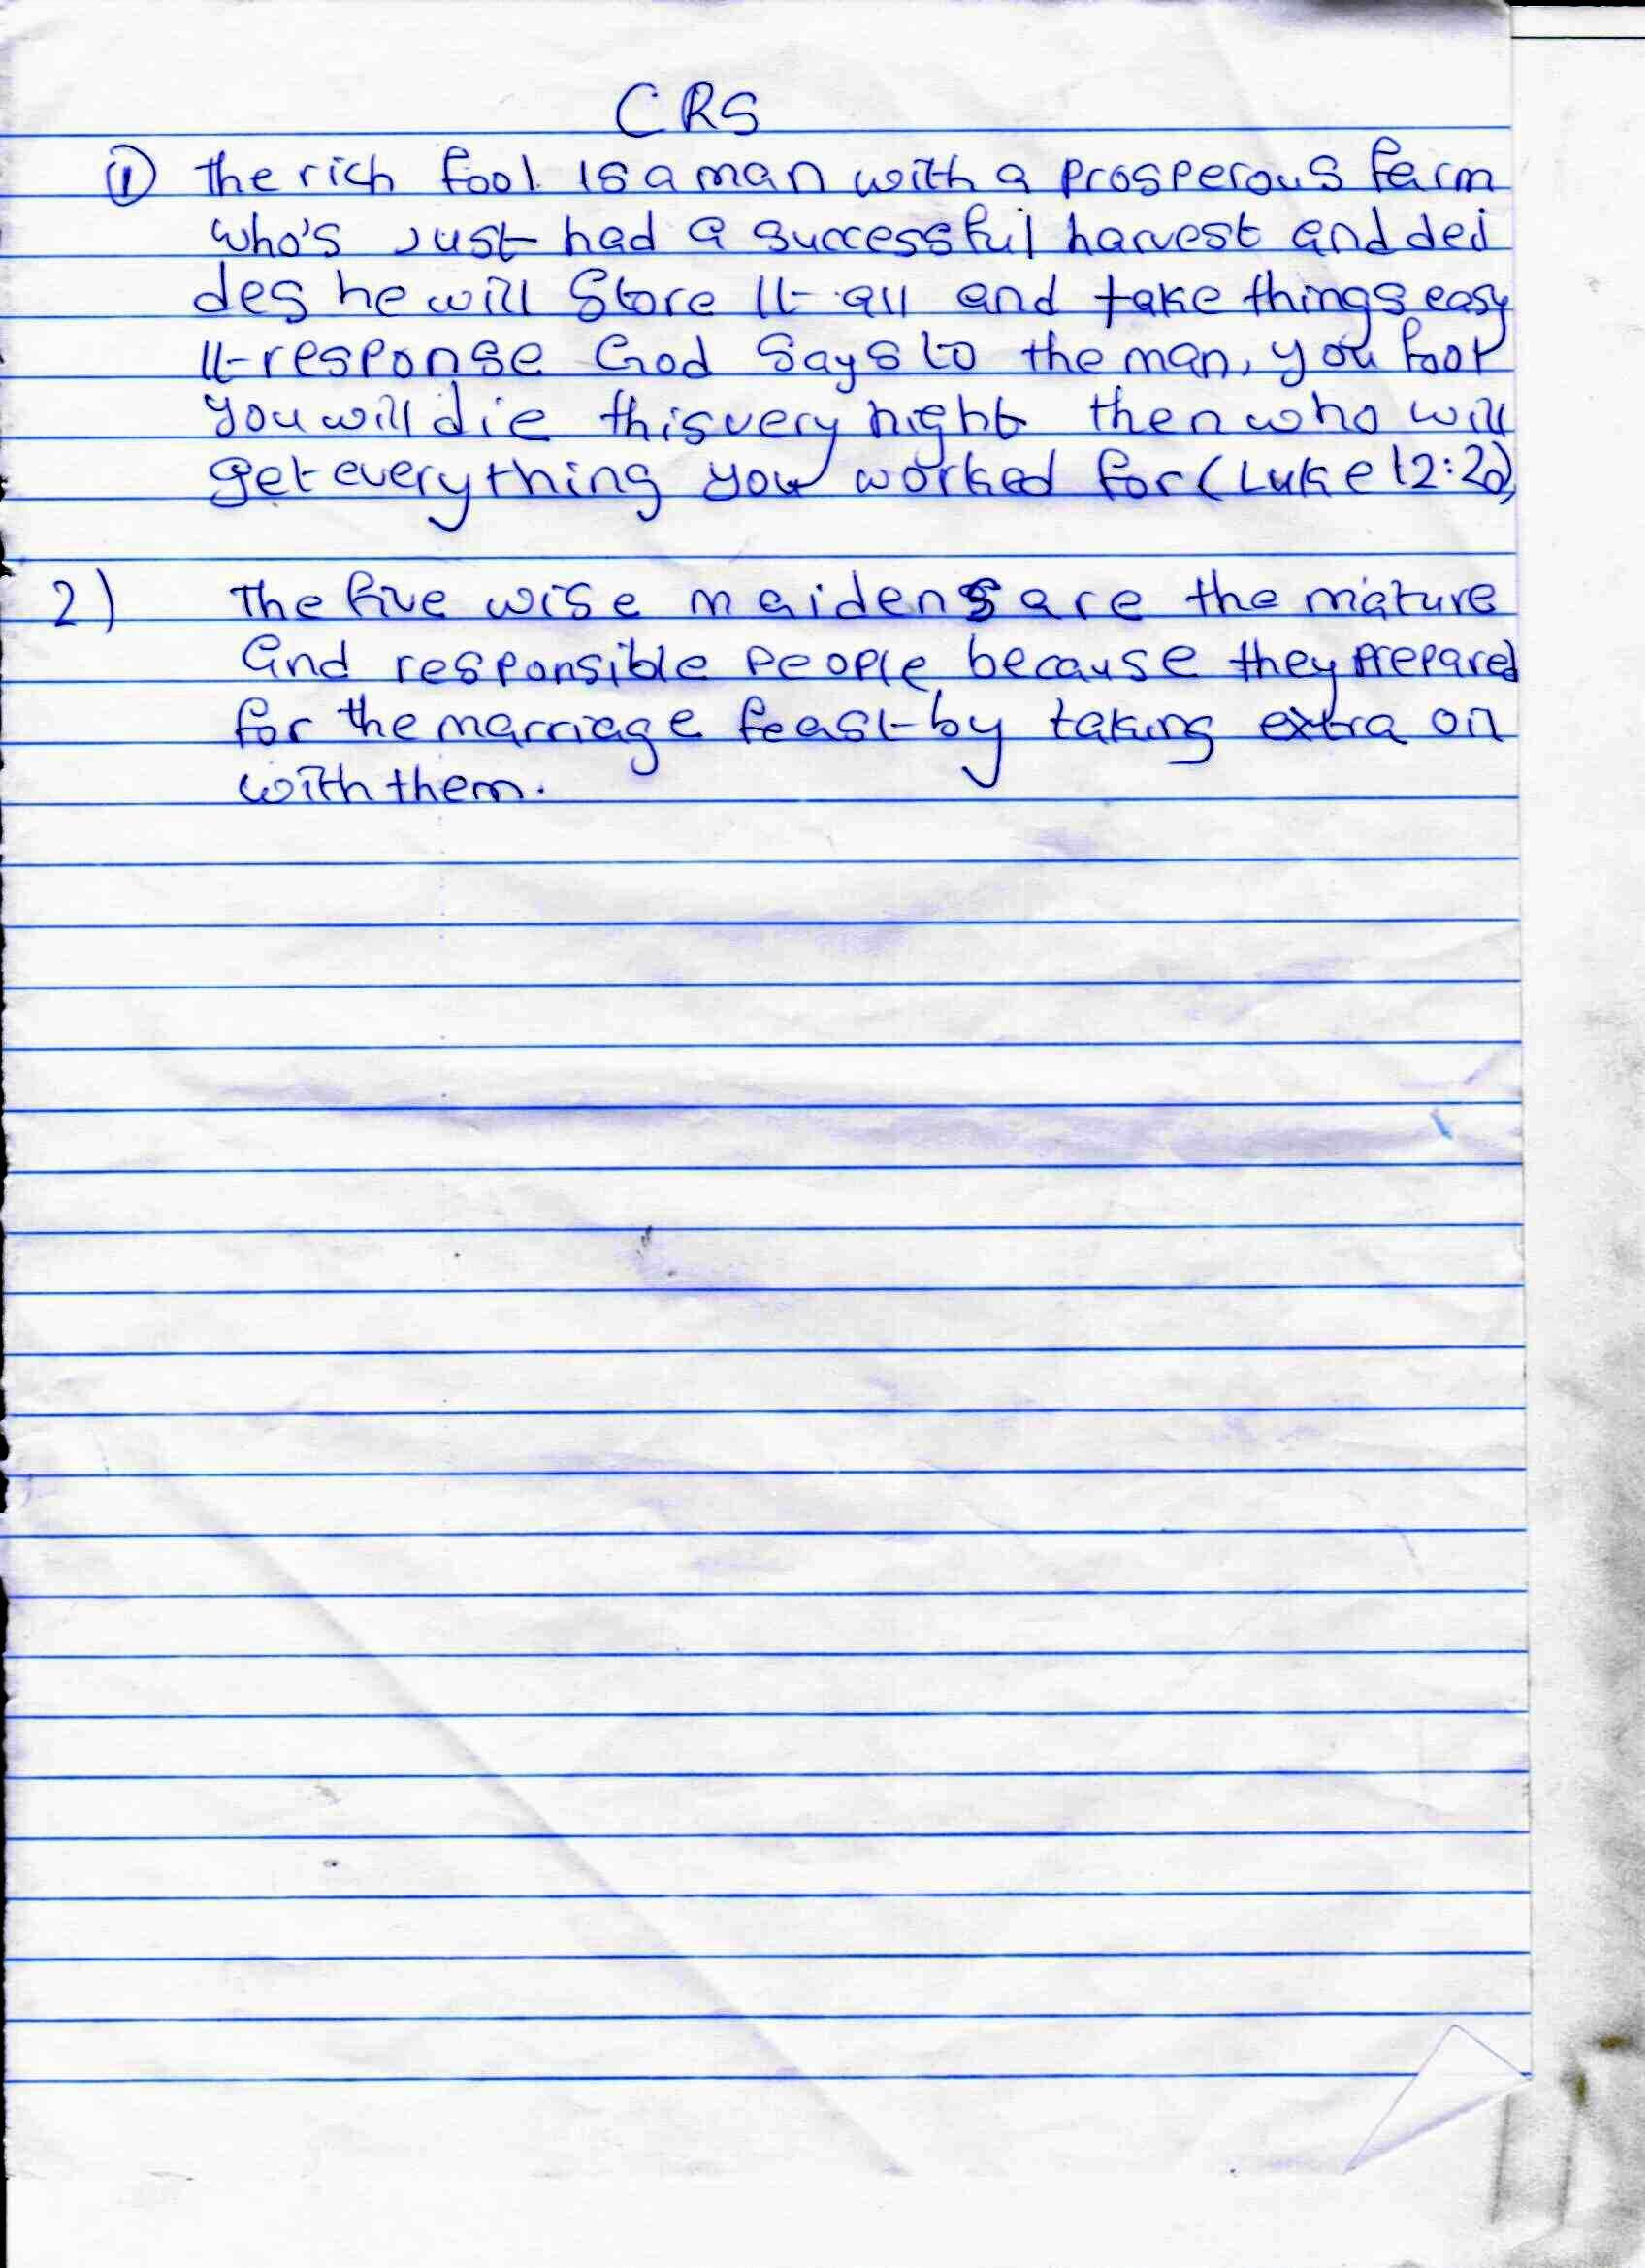 CRS
① the rich fool is a man with a prosperous farm
who's Just had a successful harvest and dei
des he will store It all and take things easy
It response God says to the man, you fool
you will die this very night then who will
get everything you worked for (Luke 12:20)
2) The five wise maidens are the mature
and responsible people because they prepared
for the marriage feast by taking extra oil
with them.